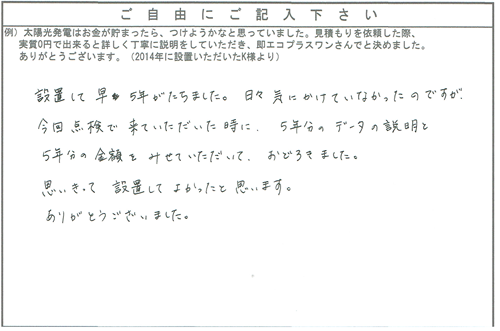 ご自由にご記入下さい
例）太陽光発電はお金が貯まったら、つけようかなと思っていました。見積もりを依頼した際、
実質0円で出来ると詳しく丁寧に説明をしていただき、即エコプラスワンさんでと決めました。
ありがとうございます。（2014年に設置いただいたK様より）
設置して早5年がたちました。日々気にかけていなかったのですが、
今回点検で来ていただいた時に、5年分のデータの説明と
5年分の金額をみせていただいて、おどろきました。
思いきって設置してよかったと思います。
ありがとうございました。